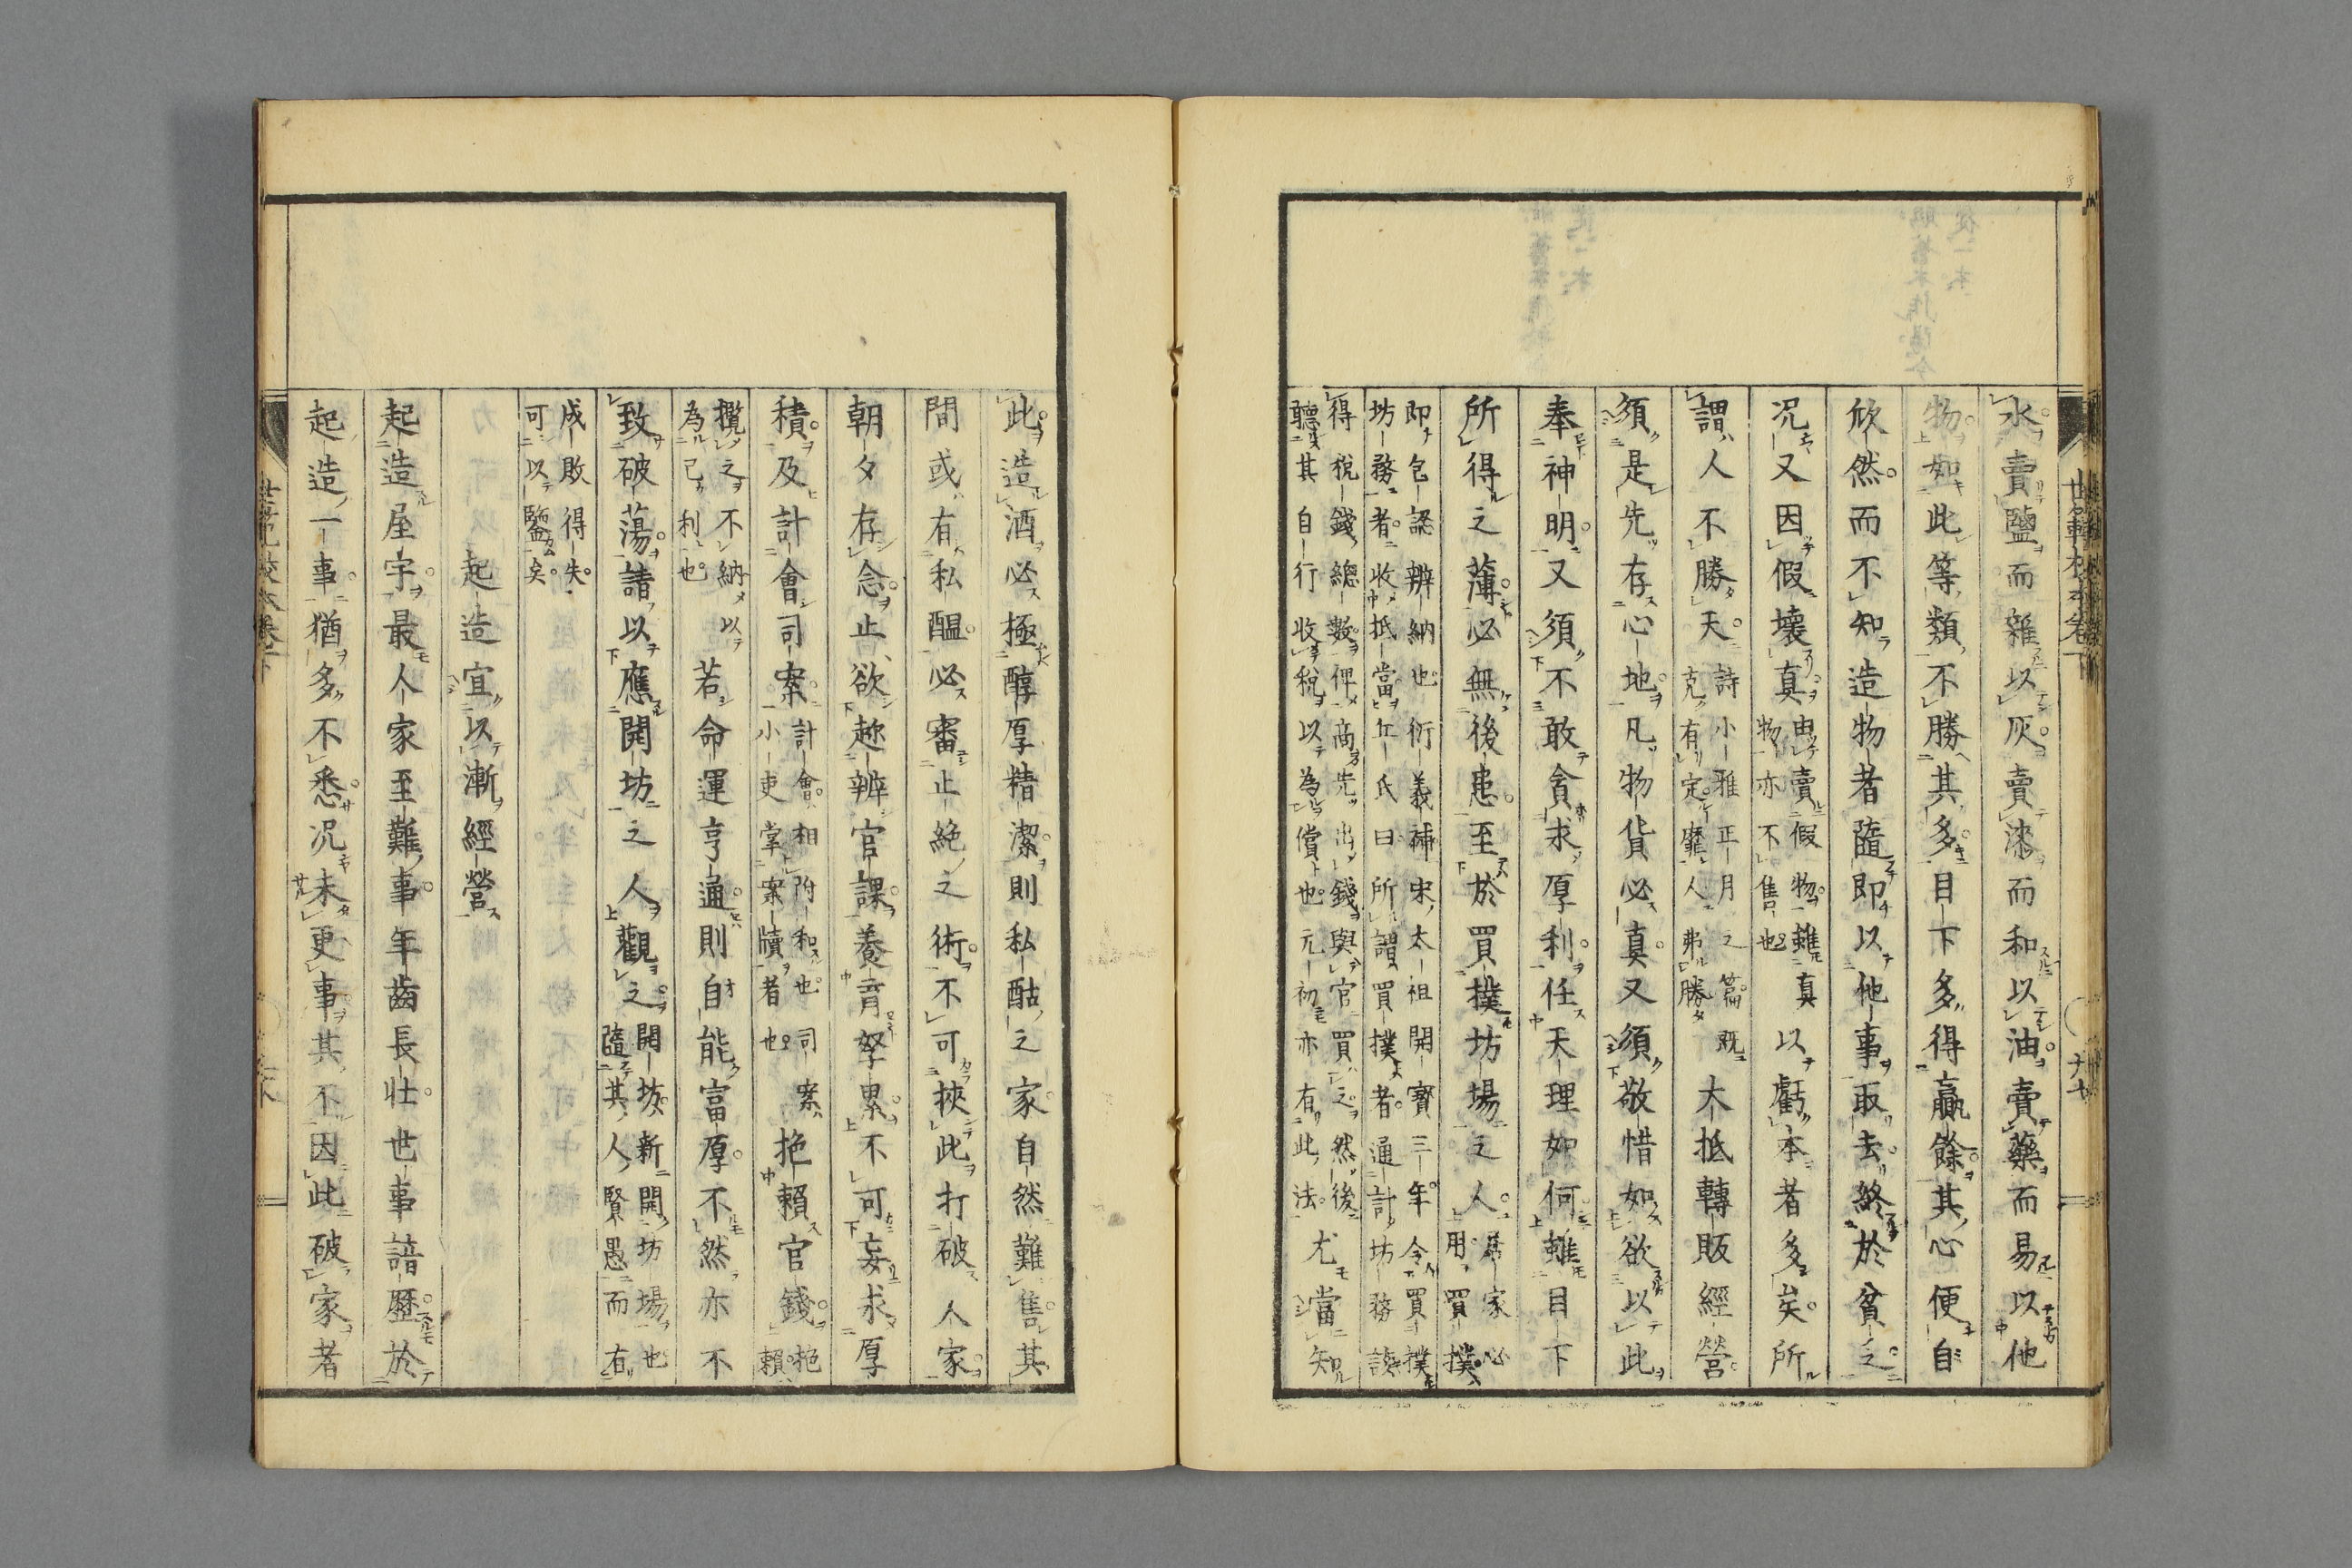 水賣鹽而雜以灰賣漆而和以油賣藥而易以他
物如此等類不勝其多目下多得贏餘其心便自
欣然而不知造物者隨即以他事取去終於貧乏
况又因假壞真由賣假物雖真物亦不售也以虧本者多矣所
謂人不勝天詩小雅正月之篇既克有定靡人弗勝大抵轉販經營
須是先存心地凡物貨必真又須敬惜如欲以此
奉神明又須不敢貪求厚利任天理如何雖目下
所得之薄必無後患至於買撲坊場之人家必用買撲
即包認辦納也衍義補宋太祖開寶三年令買撲
坊務者收抵當丘氏曰所謂買撲者通計坊務該
得稅錢總數俾商先出錢與官買之然後
聽其自行收稅以為償也元初亦有此法尤當知
此造酒必極醇厚精潔則私酤之家自然難售其
間或有私醞必審止絶之術不可挾此打破人家
朝夕存念止欲趂辨官課養育孥累不可妄求厚
積及計會司案計會相附和也司案小吏掌案牘者也拖賴官錢拖賴
攬之不納以為己利也若命運亨通則自能富厚不然亦不
致破蕩請以應開坊之人觀之開坊新開坊場也隨其人賢愚而有
成敗得失可以鑒矣
起造宜以漸經營
起造屋宇最人家至難事年齒長壯世事諳歷於
起造一事猶多不悉况未更事其不因此破家者